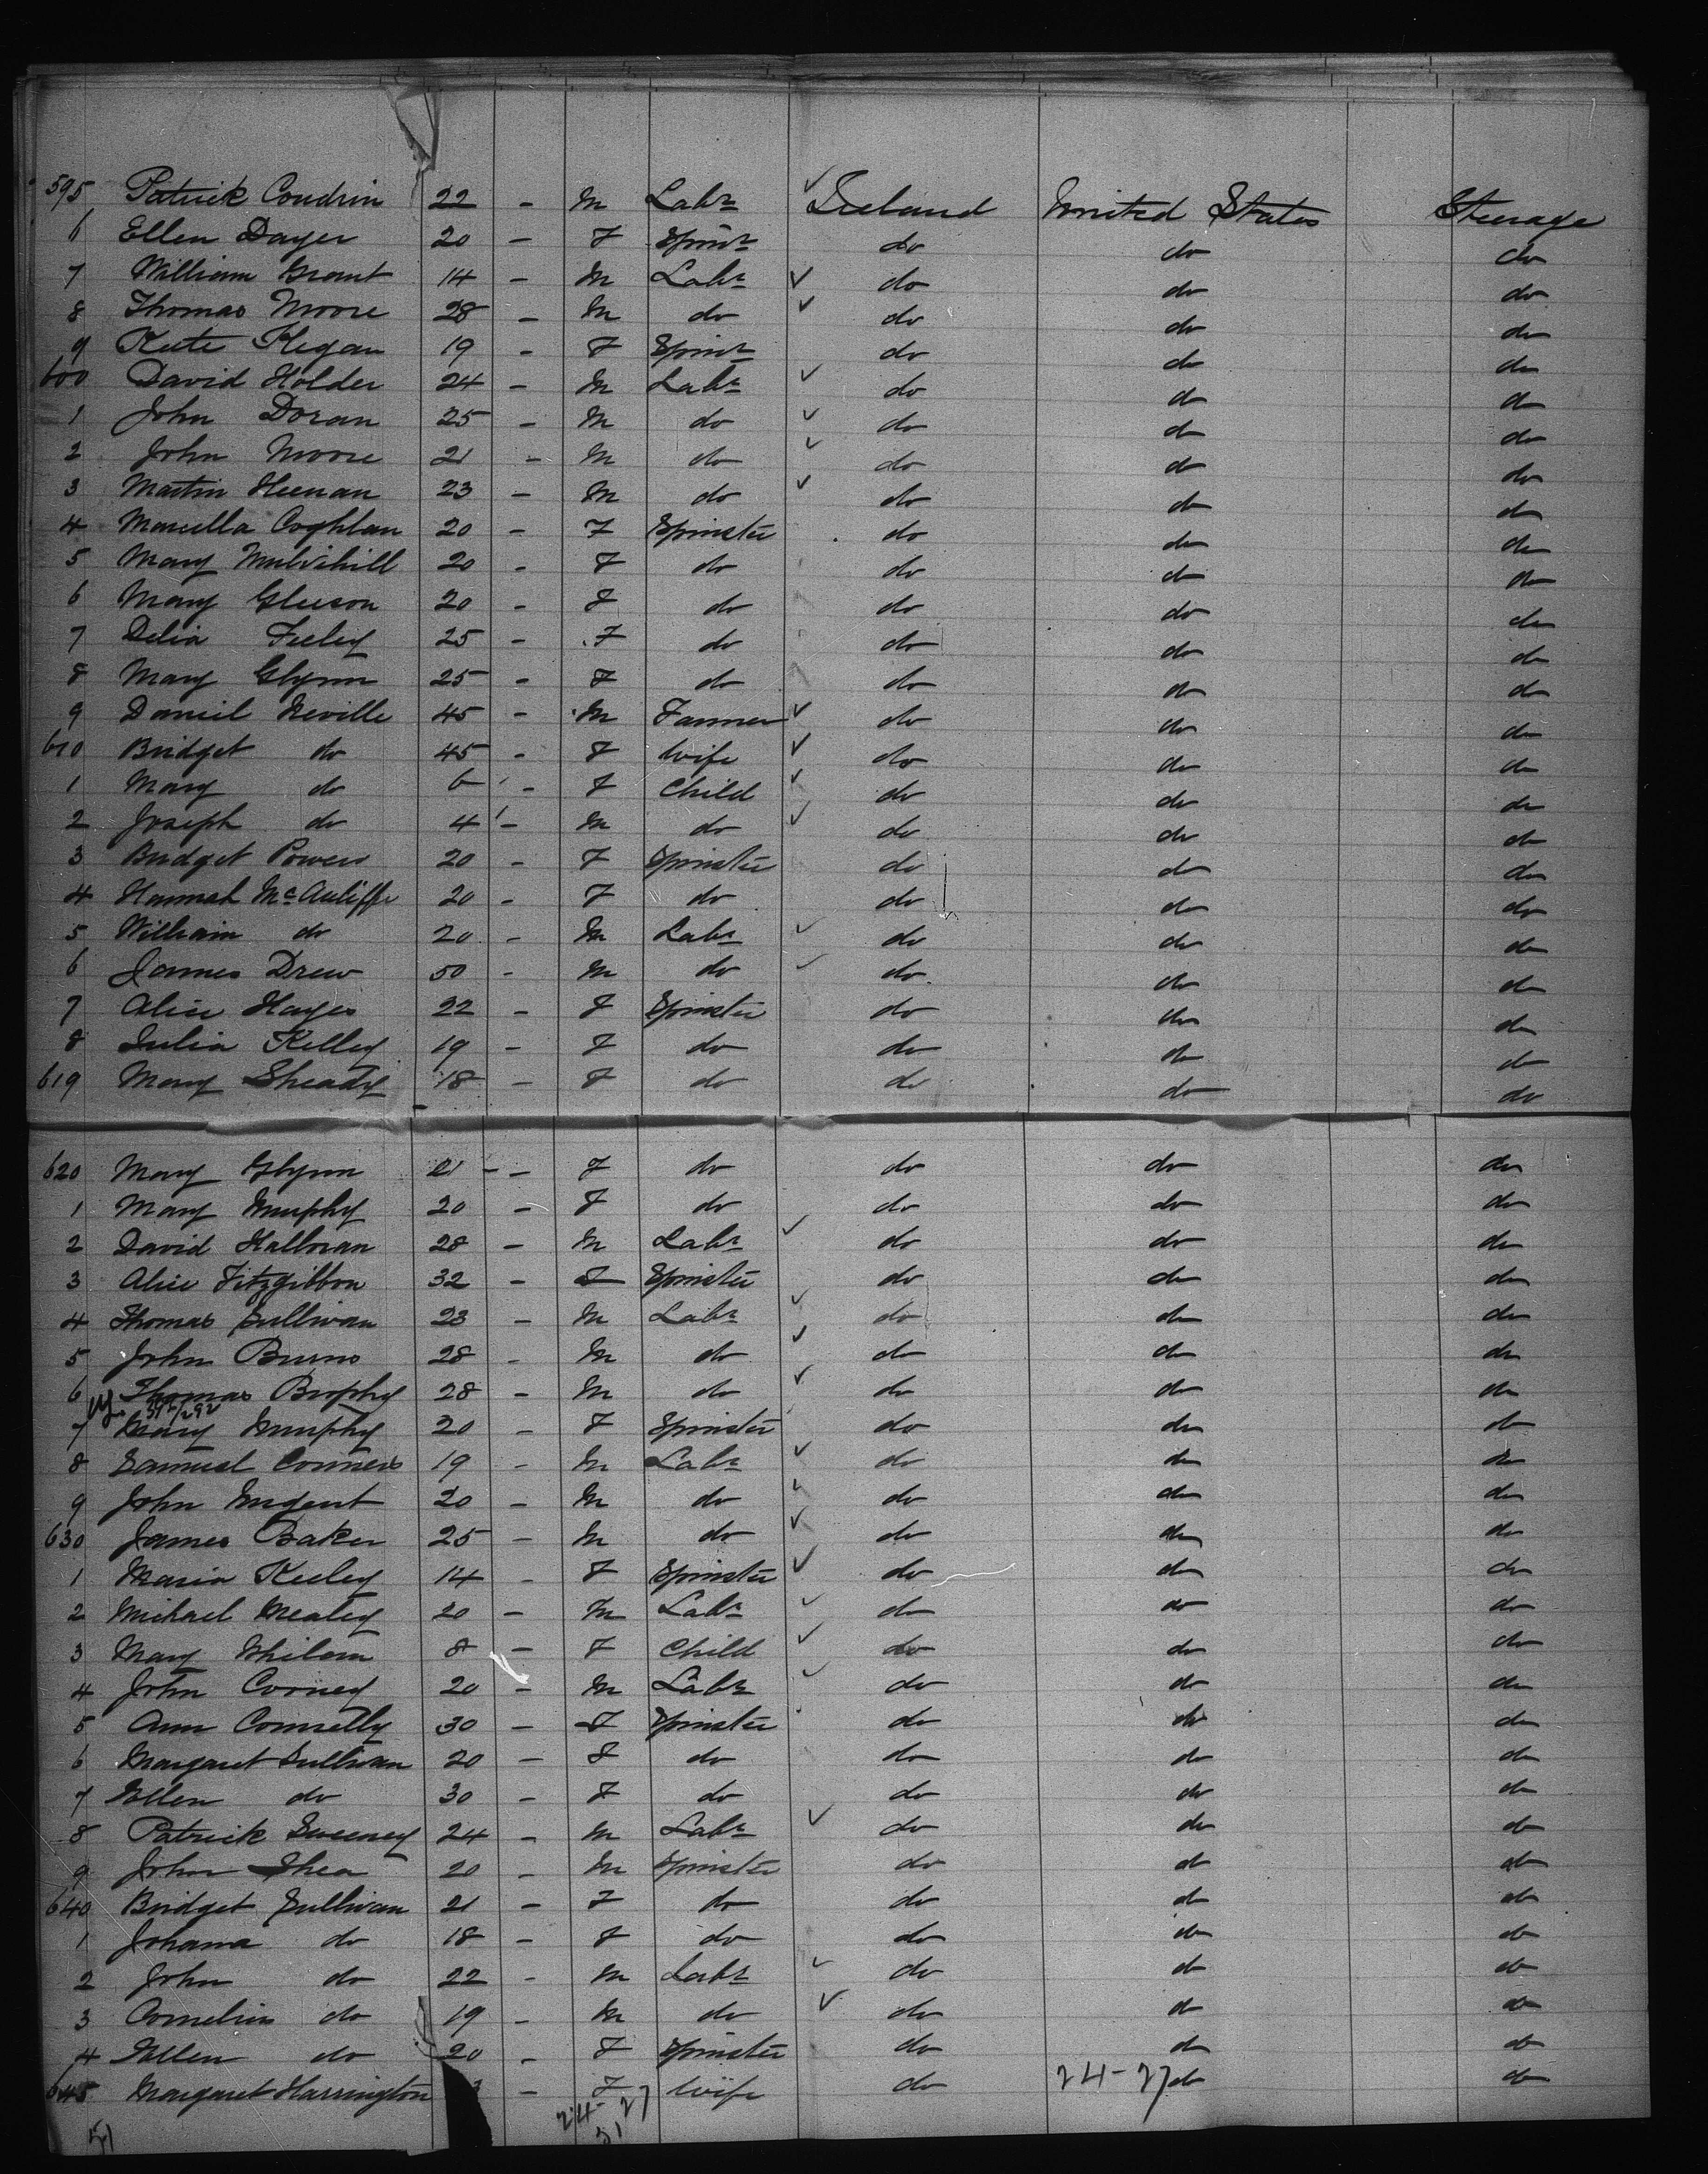 595 Patrick Condrin 22 - M Labr ✓ Ireland United States Steerage
6 Ellen Dayer 20 - F Spinr do do do
7 William Grant 14 - M Labr ✓ do do do
8 Thomas Moore 28 - M do ✓ do do do
9 Kate Kegan 19 - F Spinr do do do
600 David Holder 24 - M Labr ✓ do do do
1 John Doran 25 - M do ✓ do do do
2 John Moore 21 - M do ✓ do do do
3 Martin Heenan 23 - M do ✓ do do do
4 Marcella Coghlan 20 - F Spinster do do do
5 Mary Mulvihill 20 - F do do do do
6 Mary Gleeson 20 - F do do do do
7 Delia Feeley 25 - F do do do do
8 Mary Glynn 25 - F do do do do
9 Daniel Neville 45 - M Farmer ✓ do do do
610 Bridget do 45 - F Wife ✓ do do do
1 Mary do 6 - F Child ✓ do do do
2 Joseph do 4 - M do ✓ do do do
3 Bridget Powers 20 - F Spinster do do do
4 Hannah McAuliffe 20 - F do do do do
5 William do 20 - M Labr ✓ do do do
6 James Drew 50 - M do ✓ do do do
7 Alice Hayes 22 - F Spinster do do do
8 Julia Kelley 19 - F do do do do
619 Mary Sheady 18 - F do do do do
620 Mary Glynn 21 - - F do do do do
1 Mary Murphy 20 - F do do do do
2 David Halloran 28 - M Labr ✓ do do do
3 Alice Fitzgibbon 32 - F Spinster do do do
4 Thomas Sullivan 23 - M Labr ✓ do do do
5 John Burns 28 - M do ✓ do do do
6 Thomas Brophy 28 - M do ✓ do do do
7 Mary Murphy 20 - F Spinster do do do
8 Samuel Conners 19 - M Labr ✓ do do do
9 John Nugent 20 - M do ✓ do do do
630 James Baker 25 - M do ✓ do do do
1 Maria Keeley 14 - F Spinster ✓ do do do
2 Michael Mealey 20 - M Labr ✓ do do do
3 Mary 8 - F Child ✓ do do do
4 John Corney 20 - M Labr ✓ do do do
5 Ann Connelly 30 - F Spinster do do do
6 Margaret Sullivan 20 - F do do do do
7 Ellen do 30 - F do do do do
8 Patrick Sweeney 24 - M Labr ✓ do do do
9 John Shea 20 - M Spinster do do do
640 Bridget Sullivan 21 - F do do do do
1 Johana do 18 - F do do do do
2 John do 22 - M Labr ✓ do do do
3 Cornelius do 19 - M do ✓ do do do
4 Ellen do 20 - F Spinster do do do
645 Margaret Harrington - F Wife do 24-27 do do
24-27
51 51